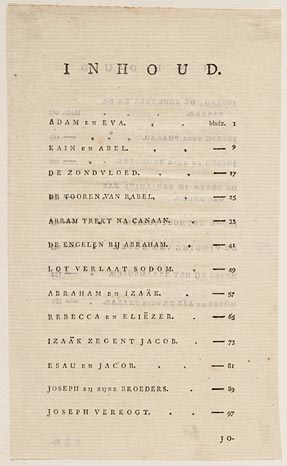 INHOUD.
ADAM EN EVA. . . bladz. 1
KAIN EN ABEL. . . — 9
DE ZONDVLOED. . . — 17
DE TOOREN VAN BABEL. . . — 25
ABRAM TREKT NA CANAAN. . — 33
DE ENGELEN BIJ ABRAHAM. . — 41
LOT VERLAAT SODOM. . . — 49
ABRAHAM EN IZAÄK. . . — 57
REBECCA EN ELIËZER. . . — 65
IZAÄK ZEGENT JACOB. . . — 73
ESAU EN JACOB. . . — 81
JOSEPH BIJ ZIJNE BROEDERS. . — 89
JOSEPH VERKOGT. . . — 97
JO-